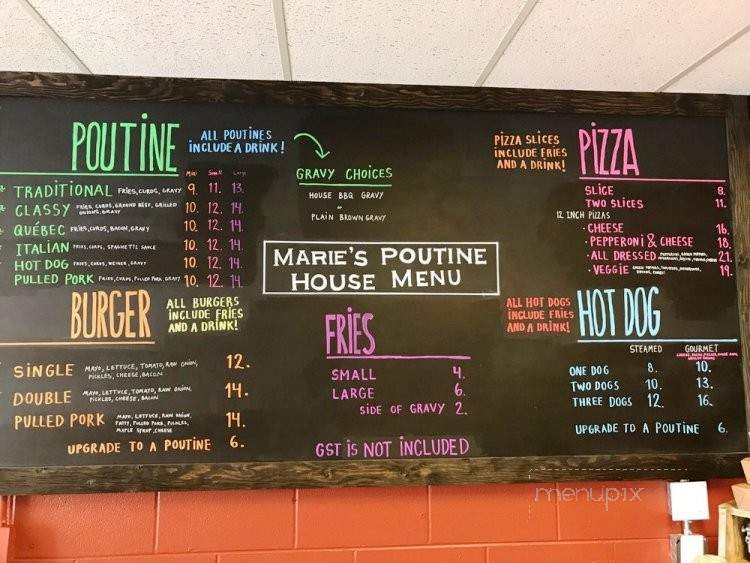 POUTINE
ALL POUTINES
INCLUDE A DRINK!
MINI SMALL LARGE
TRADITIONAL FRIES, CURDS, GRAVY 9. 11. 13.
CLASSY FRIES, CURDS, GROUND BEEF, GRILLED ONIONS, GRAVY 10. 12. 14.
QUÉBEC FRIES, CURDS, BACON, GRAVY 10. 12. 14.
ITALIAN FRIES, CURDS, SPAGHETTI SAUCE 10. 12. 14.
HOT DOG FRIES, CURDS, WEINER, GRAVY 10. 12. 14.
PULLED PORK FRIES, CURDS, PULLED PORK, GRAVY 10. 12. 14.
GRAVY CHOICES
HOUSE BBQ GRAVY
or
PLAIN BROWN GRAVY
PIZZA SLICES
INCLUDE FRIES
AND A DRINK!
PIZZA
SLICE 8.
TWO SLICES 11.
12 INCH PIZZAS
· CHEESE 16.
· PEPPERONI & CHEESE 18.
· ALL DRESSED 21.
· VEGGIE 19.
MARIE'S POUTINE
HOUSE MENU
BURGER
ALL BURGERS
INCLUDE FRIES
AND A DRINK!
SINGLE MAYO, LETTUCE, TOMATO, RAW ONION, 12.
PICKLES, CHEESE, BACON
DOUBLE MAYO, LETTUCE, TOMATO, RAW ONION, 14.
PICKLES, CHEESE, BACON
PULLED PORK MAYO, LETTUCE, RAW ONION, 14.
PATTY, PULLED PORK, PICKLES,
MAPLE SYRUP, CHEESE
UPGRADE TO A POUTINE 6.
FRIES
SMALL 4.
LARGE 6.
SIDE OF GRAVY 2.
GST IS NOT INCLUDED
ALL HOT DOGS
INCLUDE FRIES
AND A DRINK!
HOT DOG
STEAMED GOURMET
ONE DOG 8. 10.
TWO DOGS 10. 13.
THREE DOGS 12. 16.
UPGRADE TO A POUTINE 6.
menupix